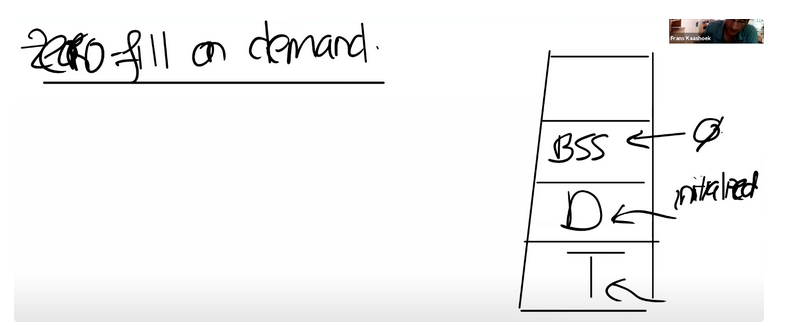 Zero-fill on demand.
Frans Kaashoek
BSS ← Ø
D ← initialized
T ←